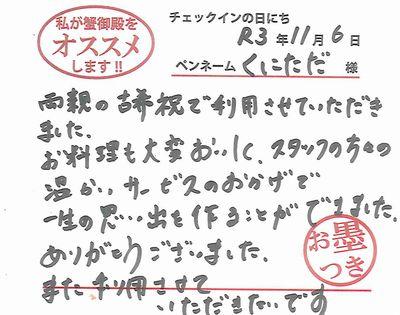 私が蟹御殿を
オススメ
します!!
チェックインの日にち
R3年11月6日
ペンネーム くにただ 様
両親の古希祝で利用させていただき
ました。
お料理も大変おいしく、スタッフの方々の
温かいサービスのおかげで
一生の思い出を作ることができました。
ありがとうございました。
また利用させて
いただきたいです
お墨
つき